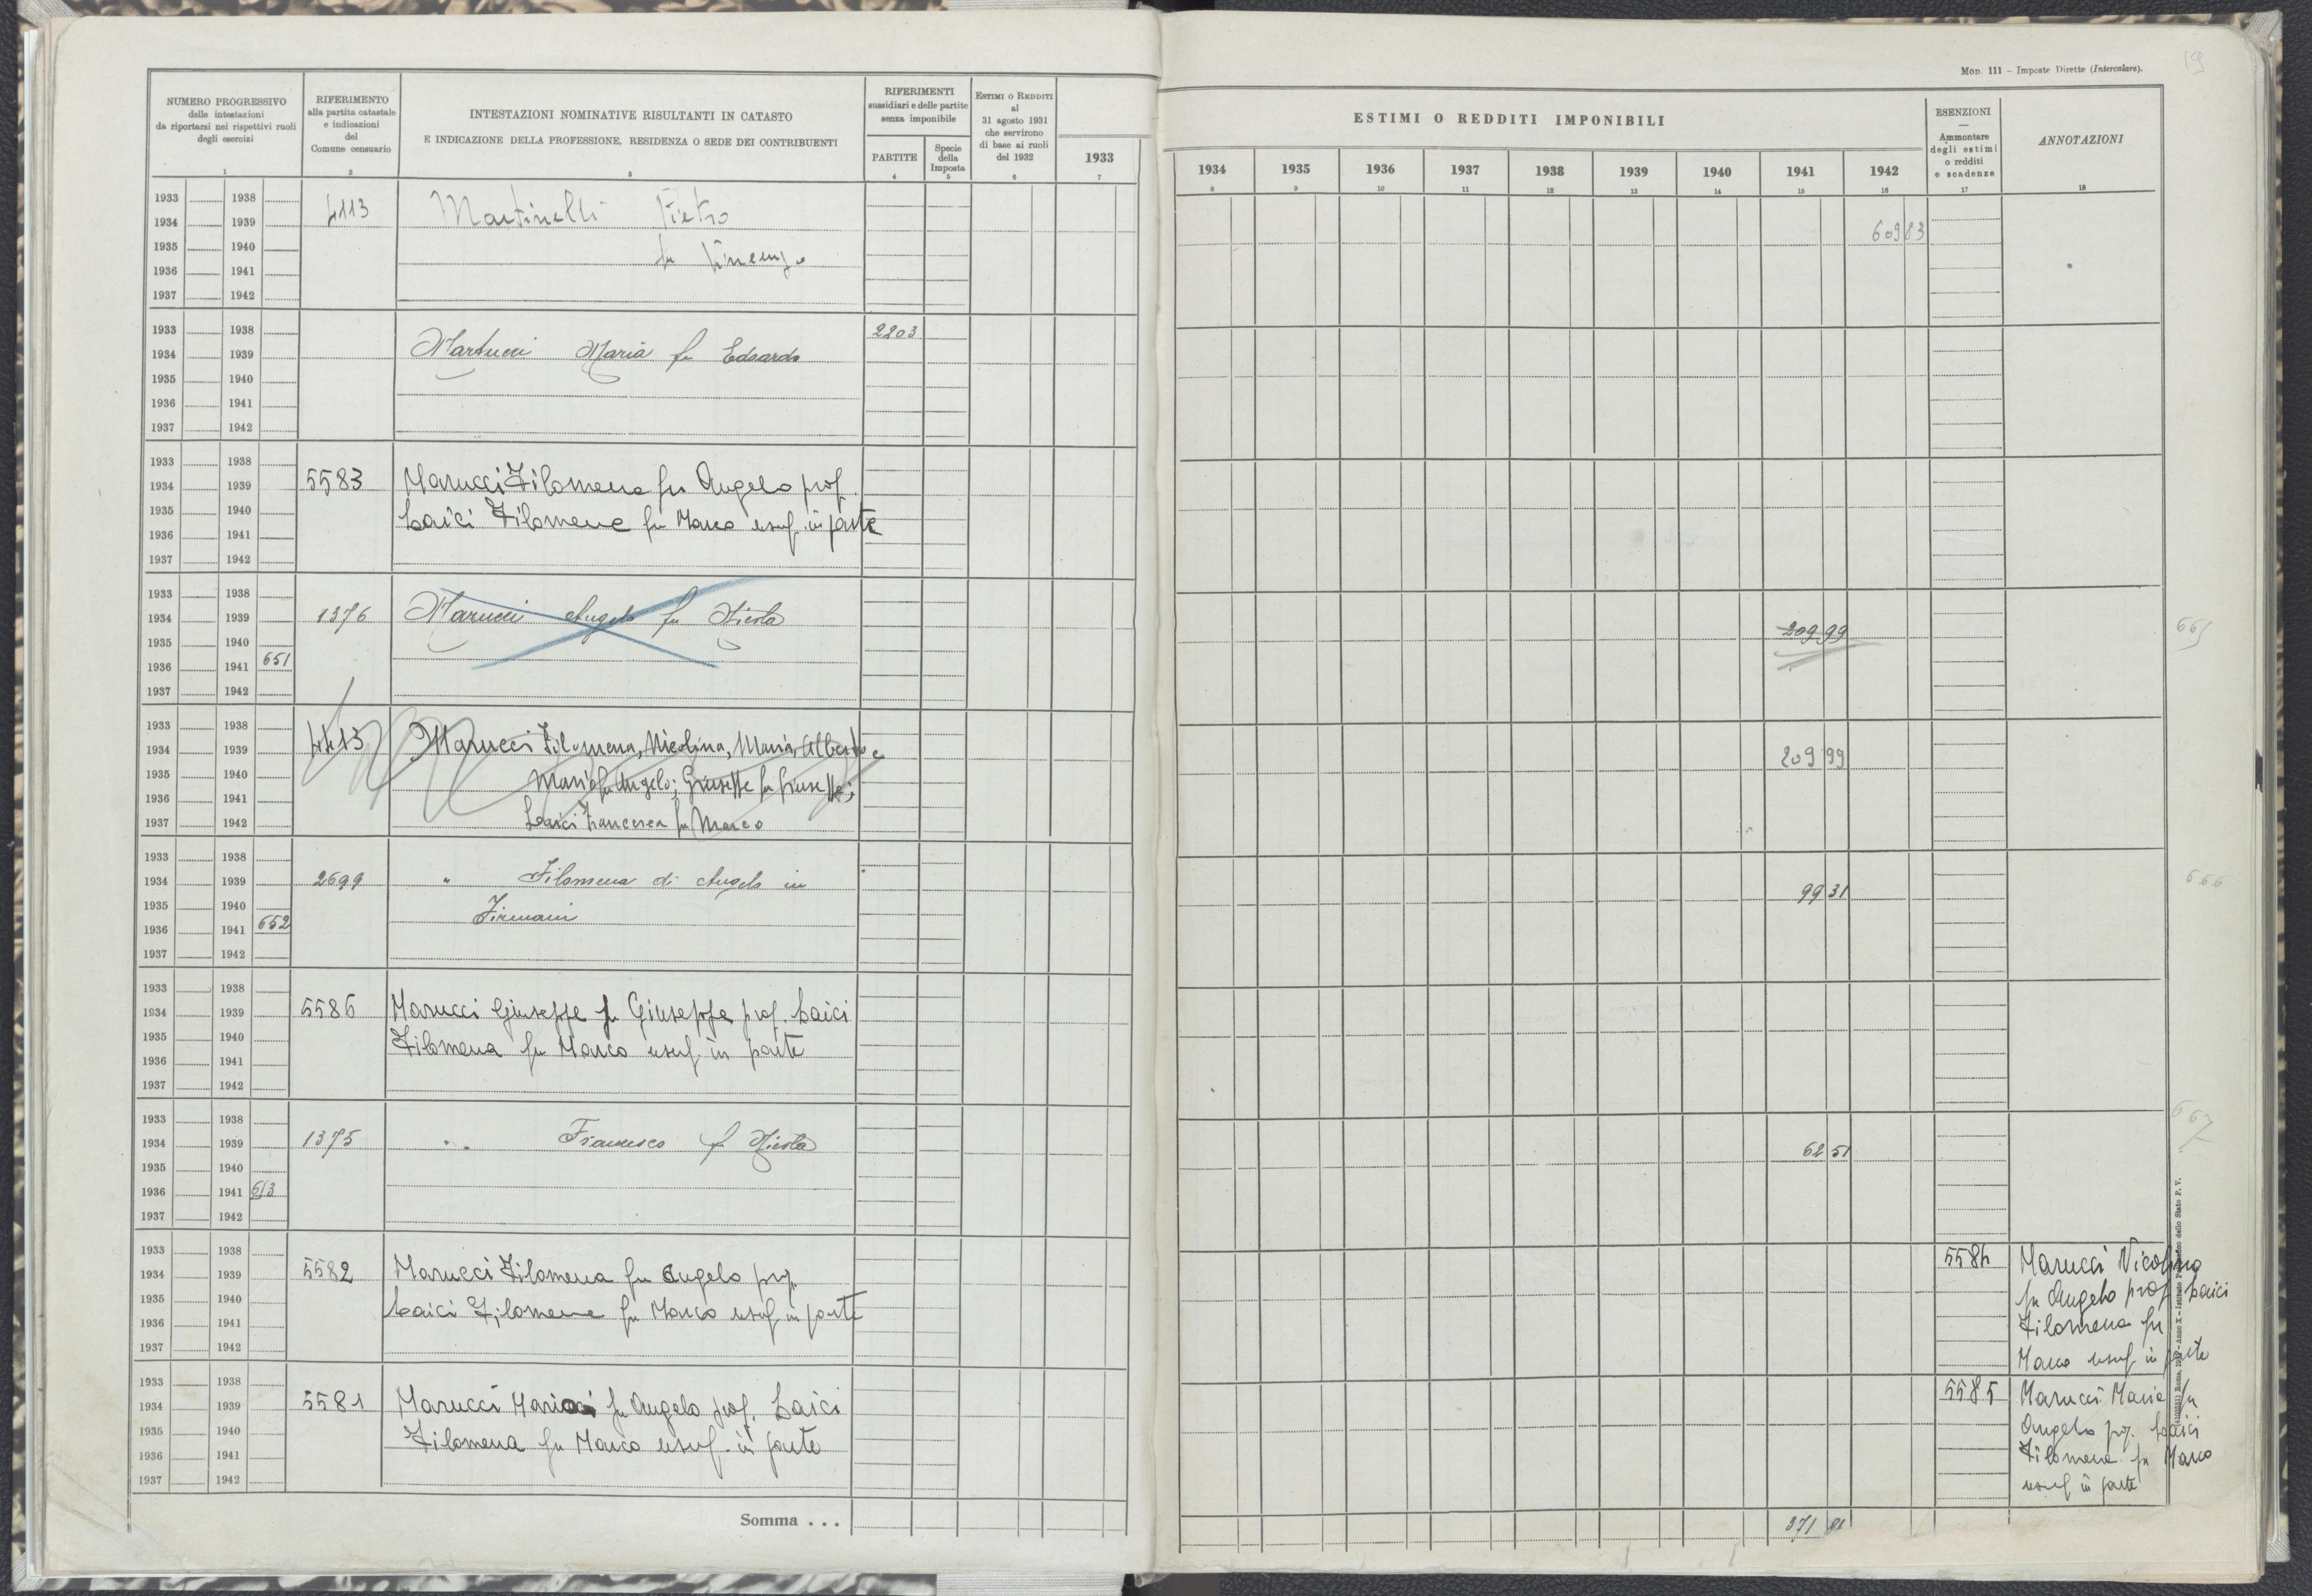 19
MOD. 111 - Imposte Dirette (Intercalare).
NUMERO PROGRESSIVO
delle intestazioni
da riportarsi nei rispettivi ruoli
degli esercizi
1
RIFERIMENTO
alla partita catastale
e indicazioni
del
Comune censuario
2
INTESTAZIONI NOMINATIVE RISULTANTI IN CATASTO
E INDICAZIONE DELLA PROFESSIONE, RESIDENZA O SEDE DEI CONTRIBUENTI
3
RIFERIMENTI
sussidiari e delle partite
senza imponibile
PARTITE
4
Specie
della
Imposta
5
ESTIMI O REDDITI
al
31 agosto 1931
che servirono
di base ai ruoli
del 1932
6
ESTIMI O REDDITI IMPONIBILI
1933 1934 1935 1936 1937 1938 1939 1940 1941 1942
7 8 9 10 11 12 13 14 15 16
ESENZIONI
—
Ammontare
degli estimi
o redditi
e scadenze
17
ANNOTAZIONI
18
1933 1938
1934 1939 4113 Martinelli Pietro 609 83
1935 1940 fu Vincenzo
1936 1941
1937 1942
1933 1938 2203
1934 1939 Martucci Maria fu Edoardo
1935 1940
1936 1941
1937 1942
1933 1938
1934 1939 5583 Marucci Filomena fu Angelo prop.
1935 1940 Laici Filomena fu Marco usuf. in parte
1936 1941
1937 1942
1933 1938
1934 1939 1376 Marucci Angelo fu Nicola 209 99 665
1935 1940
1936 1941 651
1937 1942
1933 1938
1934 1939 4413 Marucci Filomena, Nicolina, Maria, Alberto e 209 99
1935 1940 Mario fu Angelo; Giuseppe fu Giuseppe;
1936 1941
1937 1942 Laici Francesca fu Marco
1933 1938
1934 1939 2699 " Filomena di Angelo in 99 31 666
1935 1940 Firmani
1936 1941 652
1937 1942
1933 1938
1934 1939 5586 Marucci Giuseppe fu Giuseppe prop. Laici
1935 1940 Filomena fu Marco usuf. in parte
1936 1941
1937 1942
1933 1938
1934 1939 1375 " Francesco fu Nicola 62 51 667
1935 1940
1936 1941 653
1937 1942
1933 1938 5584 Marucci Nicolina
1934 1939 5582 Marucci Filomena fu Angelo prop. fu Angelo prop. Laici
1935 1940 Laici Filomena fu Marco usuf in parte Filomena fu
1936 1941
1937 1942 Marco usuf in parte
1933 1938 5585 Marucci Maria fu
1934 1939 5581 Marucci Mario fu Angelo prop. Laici Angelo prop. Laici
1935 1940 Filomena fu Marco usuf. in parte Filomena fu Marco
1936 1941 usuf in parte
1937 1942
Somma . . . 371 81